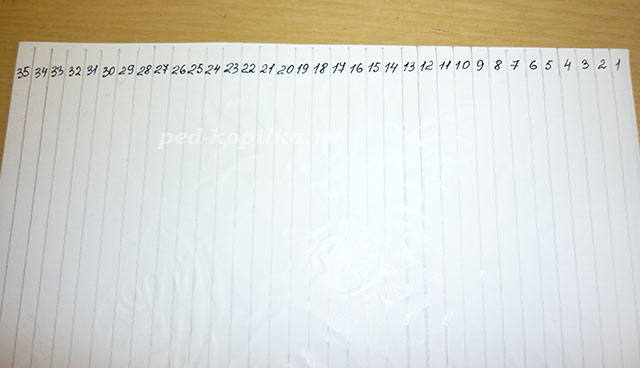 35 34 33 32 31 30 29 28 27 26 25 24 23 22 21 20 19 18 17 16 15 14 13 12 11 10 9 8 7 6 5 4 3 2 1
ped-kopilka.ru